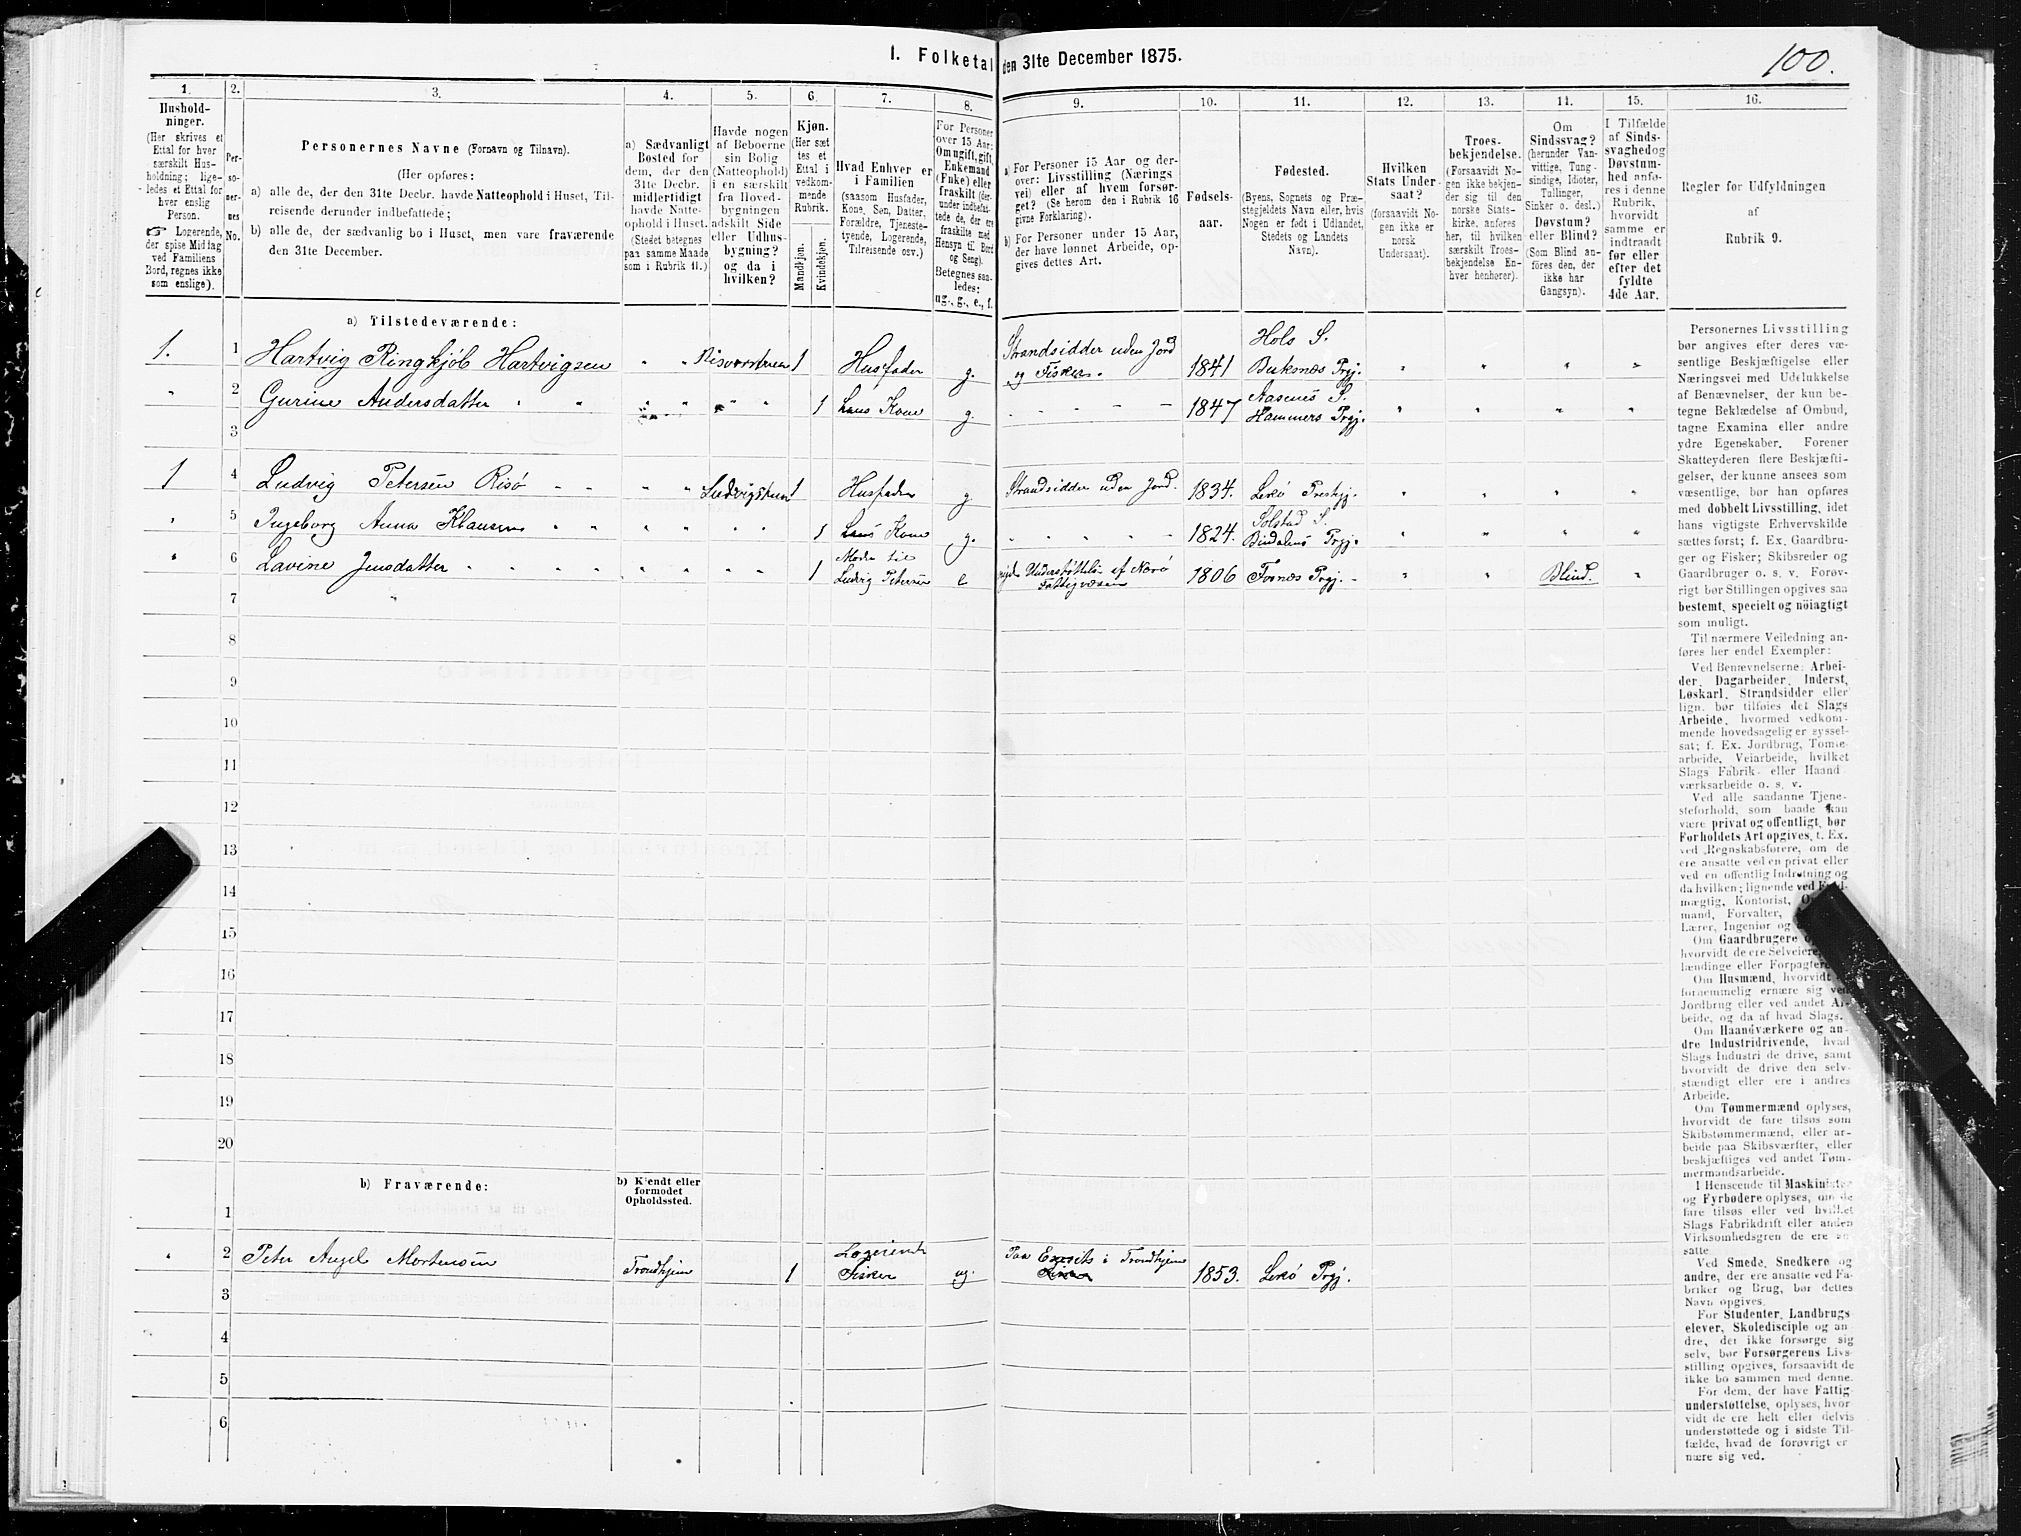 1. Folketal den 31te December 1875.
100.
1.
Hushold-
ninger.
(Her skrives et
Ettal for hver
særskilt Hus-
holdning; lige-
ledes et Ettal for
hver enslig
Person.
☞ Logerende,
der spise Middag
ved Familiens
Bord, regnes ikke
som enslige).
2.
Per-
so-
ner-
nes
No.
3.
Personernes Navne (Fornavn og Tilnavn).
(Her opføres:
a) alle de, der den 31te Decbr. havde Natteophold i Huset, Til-
reisende derunder indbefattede;
b) alle de, der sædvanlig bo i Huset, men vare fraværende
den 31te December.
4.
a) Sædvanligt
Bosted for
dem, der den
31te Decbr.
midlertidigt
havde Natte-
ophold i Huset.
(Stedet betegnes
paa samme Maade
som i Rubrik 11.)
5.
Havde nogen
af Beboerne
sin Bolig
(Natteophold)
i en særskilt
fra Hoved-
bygningen
adskilt Side
eller Udhus-
bygning?
og da i
hvilken?
6.
Kjøn.
(Her sæt
tes et
Ettal i
vedkom-
mende
Rubrik.
Mandkjøn.
Kvindekjøn.
7.
Hvad Enhver er
i Familien
(saasom Husfader,
Kone, Søn, Datter,
Forældre, Tjeneste-
tyende, Logerende,
Tilreisende osv.)
8.
For Personer
over 15 Aar:
Om ugift, gift,
Enkemand
(Enke) eller
fraskilt (der-
under indbefat-
tede de, der ere
fraskilte med
Hensyn til Bord
og Seng).
Betegnes saa-
ledes:
ug., g., e., f.
9.
a) For Personer 15 Aar og der-
over: Livsstilling (Nærings
vei) eller af hvem forsør-
get? (Se herom den i Rubrik 16
givne Forklaring).
b) For Personer under 15 Aar,
der have lønnet Arbeide, op-
gives dettes Art.
10.
Fødsels-
aar.
11.
Fødested.
(Byens, Sognets og Præ-
stegjeldets Navn eller, hvis
Nogen er født i Udlandet,
Stedets og Landets
Navn).
12.
Hvilken
Stats Under-
saat?
(forsaavidt No-
gen ikke er
norsk
Undersaat).
13.
Troes-
bekjendelse.
(Forsaavidt No-
gen ikke bekjen-
der sig til den
norske Stats-
kirke, anføres
her, til hvilken
særskilt Troes-
bekjendelse En-
hver henhører).
14.
Om
Sindssvag?
(herunder Van-
vittige, Tung-
sindige, Idioter,
Tullinger,
Sinker o. desl.)
Døvstum?
eller Blind?
(Som Blind an-
føres den, der
ikke har
Gangsyn).
15.
I Tilfælde
af Sinds-
svaghed og
Døvstum-
hed anfø-
res i denne
Rubrik,
hvorvidt
samme er
indtraadt
før eller
efter det
fyldte
4de Aar.
16.
Regler for Udfyldningen
af
Rubrik 9.
a) Tilstedeværende:
1. 1 Hartvig Ringkjøb Hartvigsen " " 1 Husfader g. Strandsidder uden Jord og Fisker. 1841 Hols S. Buksnæs Prgj. " " " "
" 2 Gurine Andersdatter " " " " " " 1 hans Kone g. - - - - 1847 Aasenes S. Hammers Prgj. " " " "
3
1 4 Ludvig Petersen Risø " " " " Ludvigstuen 1 Husfader g. Strandsidder uden Jord. 1834. Lekø Prestgj. " " " "
" 5 Ingeborg Anna Klausen " " " " " " 1 hans Kone g. " " " " 1824. Solstad S. Bindalens Prgj. " " " "
" 6 Lavine Jensdatter " " " " " " " " 1 Moder til Ludvig Petersen e Understøttelse af Nærø Fattigvæsen 1806 Fosnæs Prgj. " " Blind. "
7
8
9
10
11
12
13
14
15
16
17
18
19
20
b) Fraværende:
b) Kjendt eller
formodet
Opholdssted.
1
" 2 Peter Angel Mortensen Trondhjem 1 Logerende Fisker ug. Paa Exersits i Trondhjem 1853. Lekø Prgj.
3
4
5
6
Personernes Livsstilling
bør angives efter deres væ-
sentlige Beskjæftigelse eller
Næringsvei med Udelukkelse
af Benævnelser, der kun be-
tegne Beklædelse af Ombud,
tagne Examina eller andre
ydre Egenskaber. Forener
Skatteyderen flere Beskjæfti-
gelser, der kunne ansees som
væsentlige, bør han opføres
med dobbelt Livsstilling, idet
hans vigtigste Erhvervskilde
sættes først; f. Ex. Gaardbru-
ger og Fisker; Skibsreder og
Gaardbruger o. s. v. Forøv-
rigt bør Stillingen opgives saa
bestemt, specielt og nöiagtigt
som muligt.
Til nærmere Veiledning an-
føres her endel Exempler:
Ved Benævnelserne: Arbei-
der, Dagarbeider, Inderst,
Løskarl, Strandsidder eller
lign. bør tilføies det Slags
Arbeide, hvormed vedkom-
mende hovedsagelig er syssel-
sat; f. Ex. Jordbrug, Tomte-
arbeide, Veiarbeide, hvilket
Slags Fabrik- eller Haand
værksarbeide o. s. v.
Ved alle saadanne Tjene-
steforhold, som baade kan
være privat og offentligt, bør
Forholdets Art opgives, t. Ex.
ved Regnskabsførere, om de
ere ansatte ved en privat eller
ved en offentlig Indretning og
da hvilken; lignende ved
mægtig, Kontorist,
mand, Forvalter,
Lærer, Ingeniør og
Om Gaardbrugere
hvorvidt de ere Selveiere,
lændinge eller Forpagtere.
Om Husmænd, hvorvidt
fornemmelig ernære sig ved
Jordbrug eller ved andet Ar-
beide, og da af hvad Slags.
Om Haandværkere og an-
dre Industridrivende, hvad
Slags Industri de drive, samt
hvorvidt de drive den selv-
stændigt eller ere i andres
Arbeide.
Om Tømmermænd oplyses,
hvorvidt de fare tilsøs som
Skibstømmermænd, eller ar-
beide paa Skibsværfter, eller
beskjæftiges ved andet Tøm-
mermandsarbeide.
I Henseende til Maskinister
og Fyrbødere oplyses, om de
fare tilsøs eller ved hvilket
Slags Fabrikdrift eller anden
Virksomhedsgren de ere an-
satte
Ved Smede, Snedkere og
andre, der ere ansatte ved Fa-
briker og Brug, bør dettes
Navn opgives.
For Studenter, Landbrugs
elever, Skoledisciple og an-
dre, der ikke forsørge sig
selv, bør Forsørgerens Livs-
stilling opgives, forsaavidt de
ikke bo sammen med denne.
For dem, der have Fattig
understøttelse, oplyses, hvor
vidt de ere helt eller delvis
understøttede og i sidste Til-
fælde, hvad de forøvrigt er
nære sig ved.